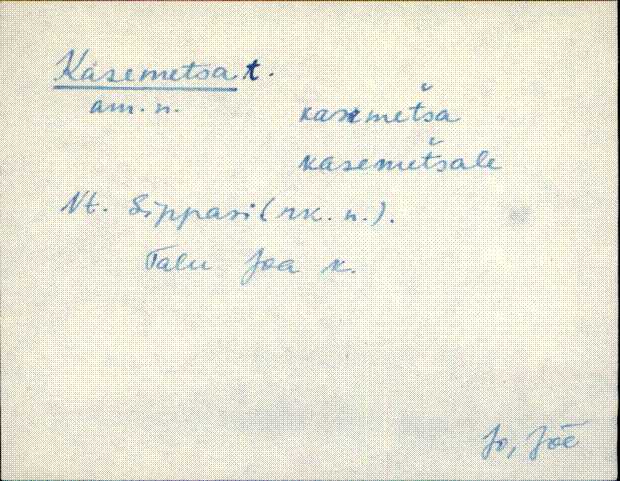 Kasemetsa t.
am. n.
kasemetša
kasemetšale
Vt. Sippasi (rk. n.).
Talu Joa k.
Jo, Jõe